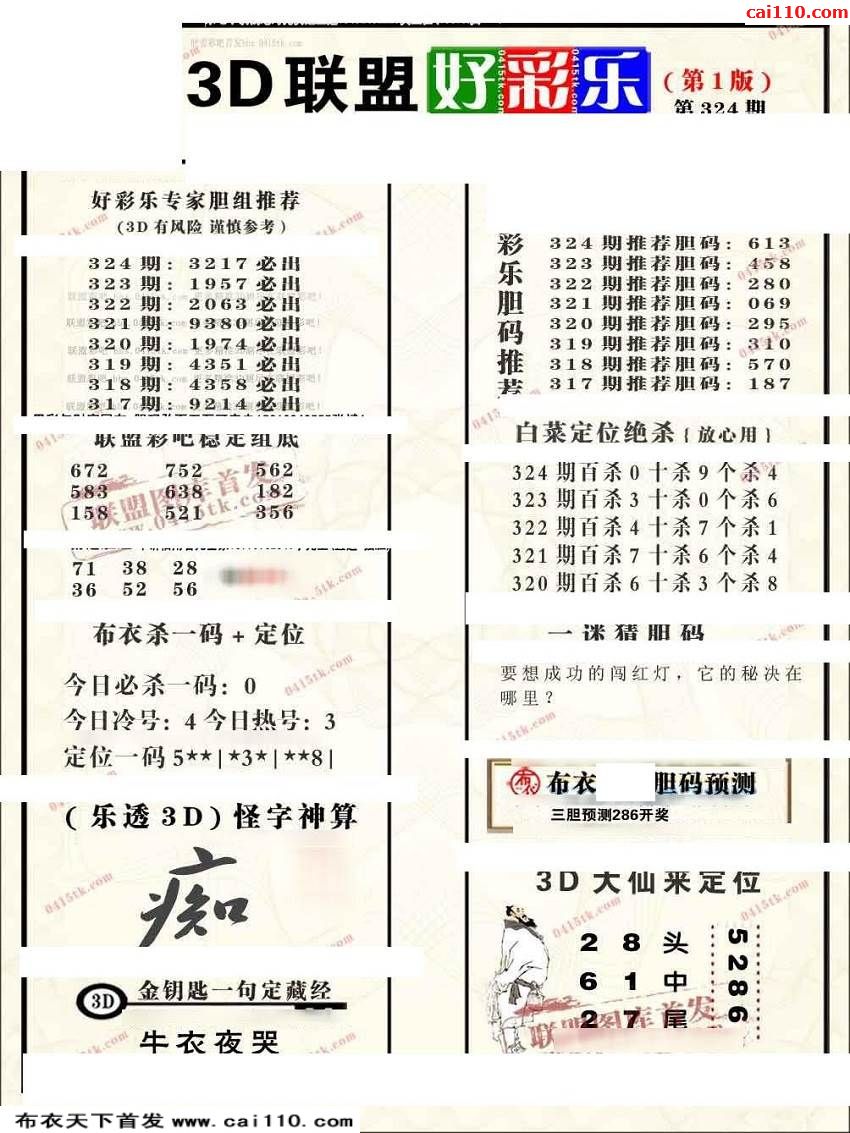 cai110.com
联盟彩吧首发bbs.0415tk.com
3D联盟好彩乐
(第1版)
第324期
好彩乐专家胆组推荐
(3D有风险 谨慎参考)
324期: 3217必出
323期: 1957必出
322期: 2063必出
321期: 9380必出
320期: 1974必出
319期: 4351必出
318期: 4358必出
317期: 9214必出
联盟彩吧稳定组底
672 752 562
583 638 182
158 521 356
联盟图库首发
www.0415tk.com
71 38 28
36 52 56
布衣杀一码+定位
今日必杀一码: 0
今日冷号: 4 今日热号: 3
定位一码5**|*3*|**8|
(乐透3D)怪字神算
痴
3D 金钥匙一句定藏经
牛衣夜哭
彩乐胆码推荐
324期推荐胆码: 613
323期推荐胆码: 458
322期推荐胆码: 280
321期推荐胆码: 069
320期推荐胆码: 295
319期推荐胆码: 310
318期推荐胆码: 570
317期推荐胆码: 187
白菜定位绝杀{放心用}
324期百杀0十杀9个杀4
323期百杀3十杀0个杀6
322期百杀4十杀7个杀1
321期百杀7十杀6个杀4
320期百杀6十杀3个杀8
一谜猜胆码
要想成功的闯红灯，它的秘决在
哪里？
布衣 胆码预测
三胆预测286开奖
3D大仙来定位
2 8 头
6 1 中
2 7 尾
5286
联盟图库首发
0415tk.com
布衣天下首发 www.cai110.com